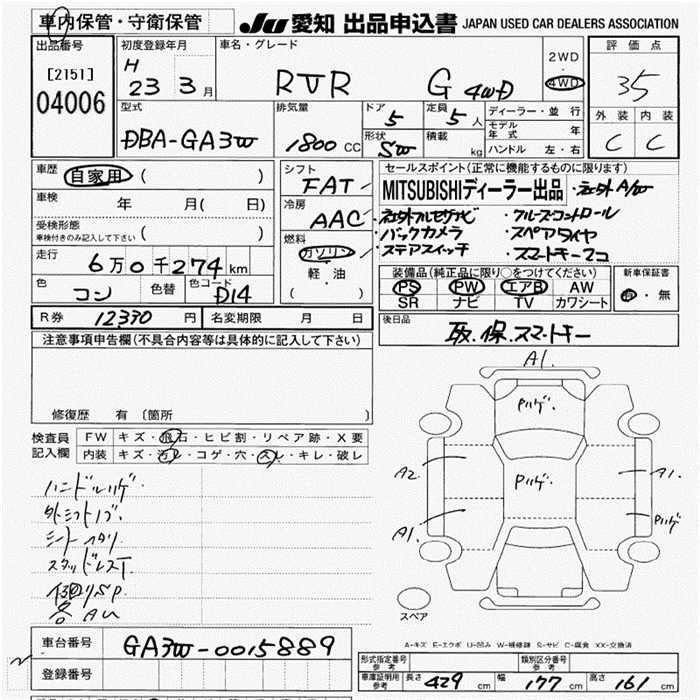 車内保管・守衛保管
JU 愛知 出品申込書 JAPAN USED CAR DEALERS ASSOCIATION
出品番号
[2151]
04006
初度登録年月
H
23 3 月
車名・グレード
RVR G 4WD
2WD
・
4WD
評価点
3.5
外装 内装
C C
型式
DBA-GA3W
排気量
1800 CC
ドア
5
形状
SW
定員
5 人
積載
kg
ディーラー・並行
モデル年式 年
ハンドル 左・右
車歴
自家用 ( )
車検 年 月( 日)
受検形態
車検付きのみ記入して下さい ( )
走行
6万0千274km
色
コン
色替
色コード
D14
シフト
FAT
冷房
AAC
燃料
ガソリン
軽・油
( )
セールスポイント(正常に機能するものに限ります)
MITSUBISHIディーラー出品 ・社外A/W
・社外フルセグナビ ・クルーズコントロール
・バックカメラ ・スペアタイヤ
・ステアスイッチ ・スマートキー2コ
装備品(純正品に限り○をつけてください)
PS PW エアB AW
SR ナビ TV カワシート
新車保証書
有・無
R券 12330 円
名変期限 月 日
後日品
取.保.スマートキー
注意事項申告欄(不具合内容等は具体的に記入して下さい)
修復歴 有 〔箇所 〕
検査員
記入欄
FW キズ・飛石・ヒビ割・リペア跡・X要
内装 キズ・汚レ・コゲ・穴・スレ・キレ・破レ
ハンドルハゲ
シートヘタリ
スタッドレスT.
各AU
A1.
Pハゲ.
A2.
Pハゲ.
A1.
A1.
Pハゲ
スペア
A-キズ E-エクボ U-凹み W-補修跡 S-サビ C-腐食 XX-交換済
車台番号 GA3W-0015889
登録番号
形式指定番号
参考
類別区分番号
参考
車庫証明用
参考
長さ 429 cm 幅 177 cm 高さ 161 cm